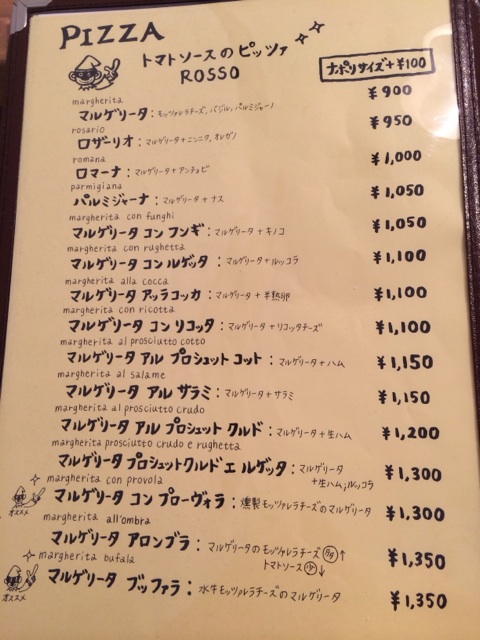 PIZZA
トマトソースのピッツァ
ROSSO
ナポリサイズ+¥100
margherita
マルゲリータ：モッツァレラチーズ, バジル, パルミジャーノ ¥900
rosario
ロザーリオ：マルゲリータ+ニンニク, オレガノ ¥950
romana
ロマーナ：マルゲリータ+アンチョビ ¥1,000
parmigiana
パルミジャーナ：マルゲリータ+ナス ¥1,050
margherita con funghi
マルゲリータ コン フンギ：マルゲリータ+キノコ ¥1,050
margherita con rughetta
マルゲリータ コン ルゲッタ：マルゲリータ+ルッコラ ¥1,100
margherita alla cocca
マルゲリータ アッラコッカ：マルゲリータ+半熟卵 ¥1,100
margherita con ricotta
マルゲリータ コン リコッタ：マルゲリータ+リコッタチーズ ¥1,100
margherita al prosciutto cotto
マルゲリータ アル プロシュット コット：マルゲリータ+ハム ¥1,150
margherita al salame
マルゲリータ アル サラミ：マルゲリータ+サラミ ¥1,150
margherita al prosciutto crudo
マルゲリータ アル プロシュット クルド：マルゲリータ+生ハム ¥1,200
margherita prosciutto crudo e rughetta
マルゲリータ プロシュットクルド エ ルゲッタ：マルゲリータ ¥1,300
+生ハム,ルッコラ
margherita con provola
オススメ マルゲリータ コン プローヴォラ：燻製モッツァレラチーズのマルゲリータ ¥1,300
margherita all'ombra
マルゲリータ アロンブラ：マルゲリータのモッツァレラチーズ ↑ ¥1,350
トマトソース少↓
margherita bufala
オススメ マルゲリータ ブッファラ：水牛モッツァレラチーズのマルゲリータ ¥1,350